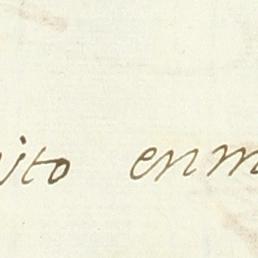 ito enm